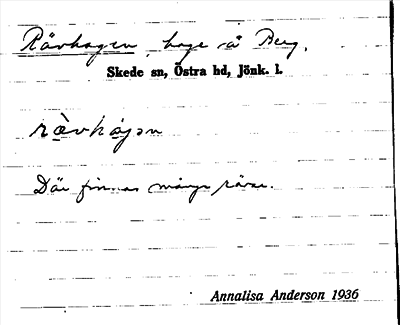 Rävhagen, hage å Berg.
Skede sn, Östra hd, Jönk. l.
rävhagen
Där finnas många rävar.
Annalisa Anderson 1936